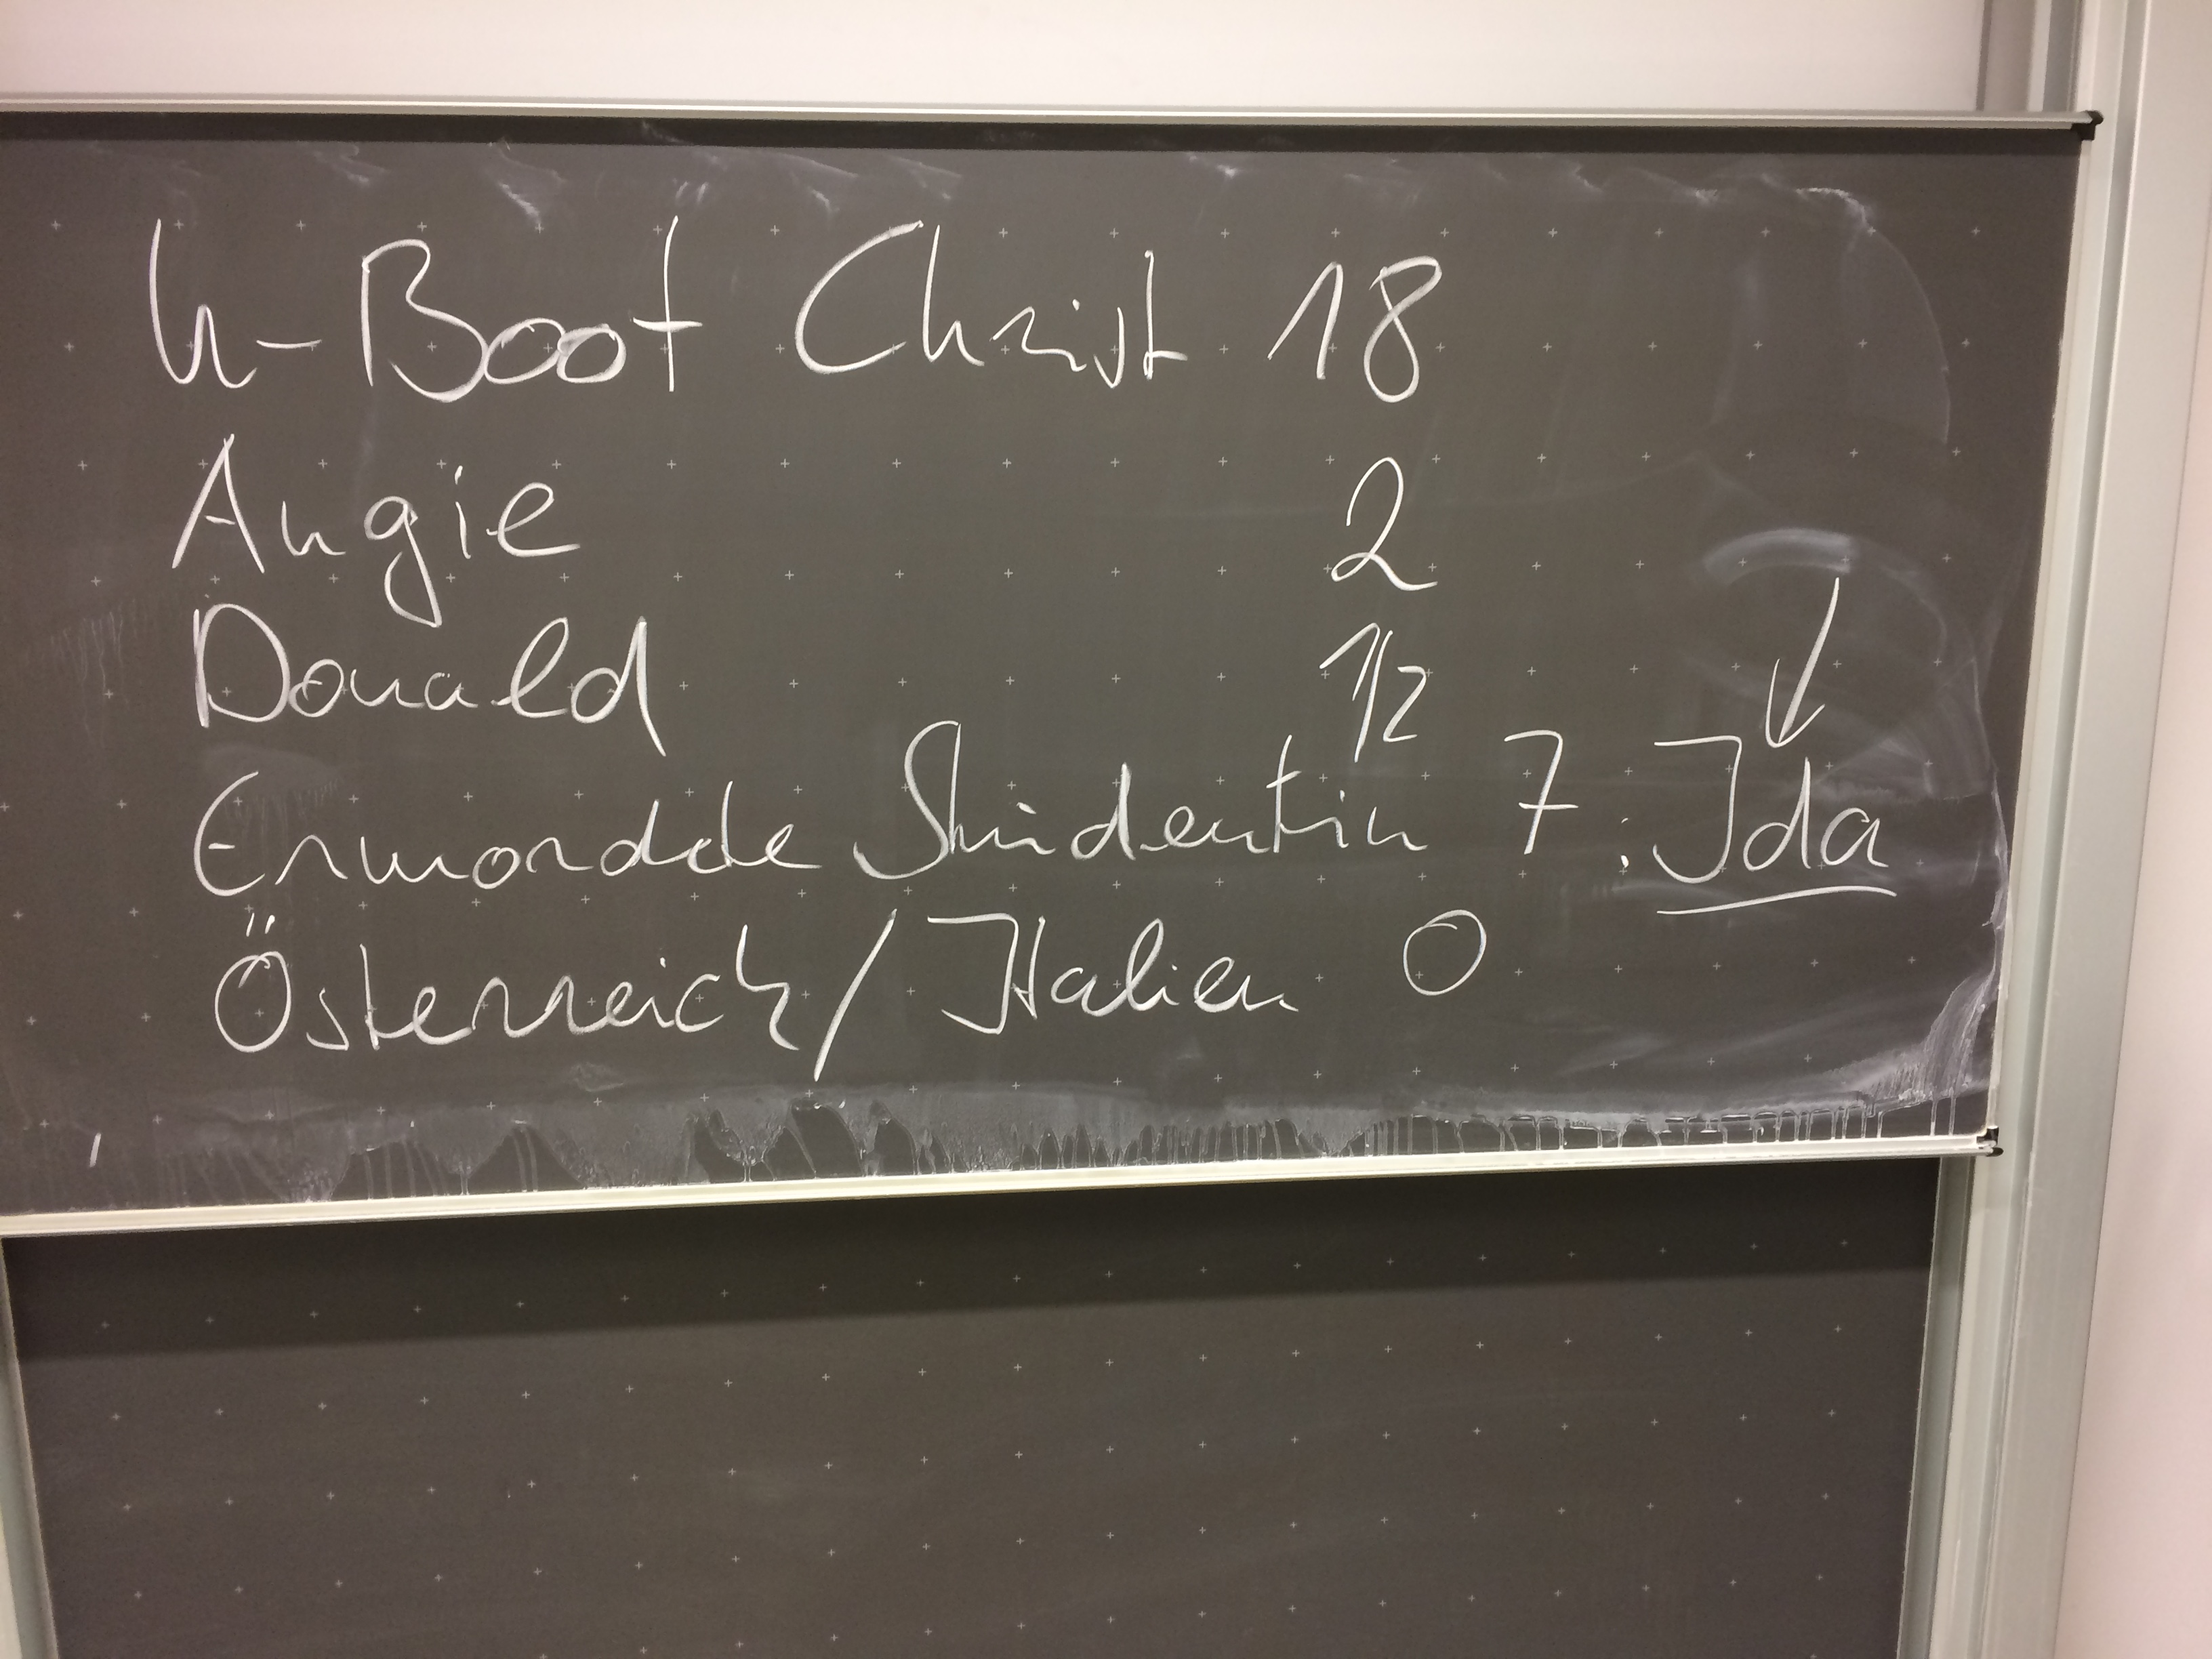 U-Boot Christ 18
Angie 2
Donald 1/2
Ermordete Studentin 7 : Ida
Österreich / Italien 0